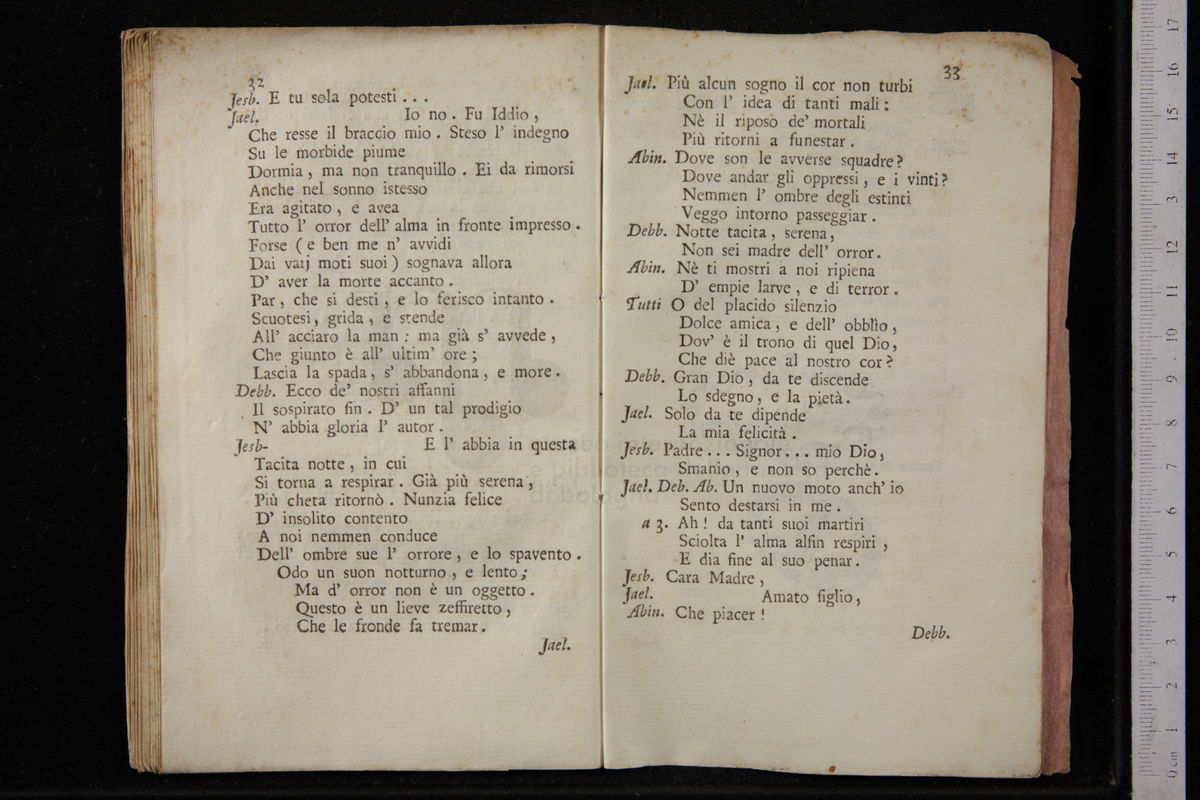 32
Jesb. E tu sola potesti . . .
Jael. Io no . Fu Iddio ,
Che resse il braccio mio . Steso l' indegno
Su le morbide piume
Dormia , ma non tranquillo . Ei da rimorsi
Anche nel sonno istesso
Era agitato , e avea
Tutto l' orror dell' alma in fronte impresso .
Forse ( e ben me n' avvidi
Dai vaij moti suoi ) sognava allora
D' aver la morte accanto .
Par , che si desti , e lo ferisco intanto .
Scuotesi , grida , e stende
All' acciaro la man : ma già s' avvede ,
Che giunto è all' ultim' ore ;
Lascia la spada , s' abbandona , e more .
Debb. Ecco de' nostri affanni
Il sospirato fin . D' un tal prodigio
N' abbia gloria l' autor .
Jesb- E l' abbia in questa
Tacita notte , in cui
Si torna a respirar . Già più serena ,
Più cheta ritornò . Nunzia felice
D' insolito contento
A noi nemmen conduce
Dell' ombre sue l' orrore , e lo spavento .
Odo un suon notturno , e lento ;
Ma d' orror non è un oggetto .
Questo è un lieve zeffiretto ,
Che le fronde fa tremar .
Jael.
33
Jael. Più alcun sogno il cor non turbi
Con l' idea di tanti mali :
Nè il riposo de' mortali
Più ritorni a funestar .
Abin. Dove son le avverse squadre ?
Dove andar gli oppressi , e i vinti ?
Nemmen l' ombre degli estinti
Veggo intorno passeggiar .
Debb. Notte tacita , serena ,
Non sei madre dell' orror .
Abin. Nè ti mostri a noi ripiena
D' empie larve , e di terror .
Tutti O del placido silenzio
Dolce amica , e dell' obblìo ,
Dov' è il trono di quel Dio ,
Che diè pace al nostro cor ?
Debb. Gran Dio , da te discende
Lo sdegno , e la pietà .
Jael. Solo da te dipende
La mia felicità .
Jesb. Padre . . . Signor . . . mio Dio ,
Smanio , e non so perchè .
Jael. Deb. Ab. Un nuovo moto anch' io
Sento destarsi in me .
a 3. Ah ! da tanti suoi martiri
Sciolta l' alma alfin respiri ,
E dia fine al suo penar .
Jesb. Cara Madre ,
Jael. Amato figlio ,
Abin. Che piacer !
Debb.